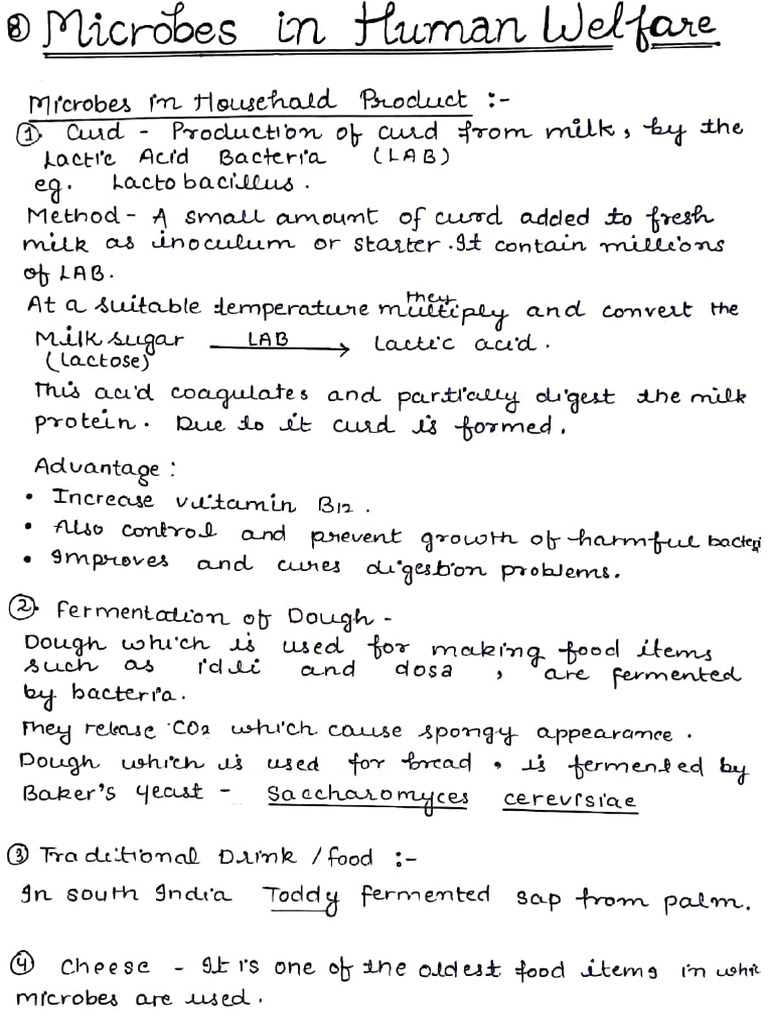 8) Microbes in Human Welfare
Microbes in Household Product :-
① Curd - Production of curd from milk, by the
Lactic Acid Bacteria (LAB)
eg. Lactobacillus.
Method - A small amount of curd added to fresh
milk as inoculum or starter. It contain millions
of LAB.
At a suitable temperature they multiply and convert the
Milk sugar LAB → Lactic acid.
(Lactose)
This acid coagulates and partially digest the milk
protein. Due to it curd is formed.
Advantage :
• Increase vitamin B12.
• Also control and prevent growth of harmful bacteri
• Improves and cures digestion problems.
②. Fermentation of Dough -
Dough which is used for making food items
such as idli and dosa, are fermented
by bacteria.
They release CO2 which cause spongy appearance.
Dough which is used for bread. is fermented by
Baker's yeast - Saccharomyces cerevisiae
③ Traditional Drink / food :-
In south India Toddy fermented sap from palm.
④ Cheese - It is one of the oldest food items in whi
microbes are used.